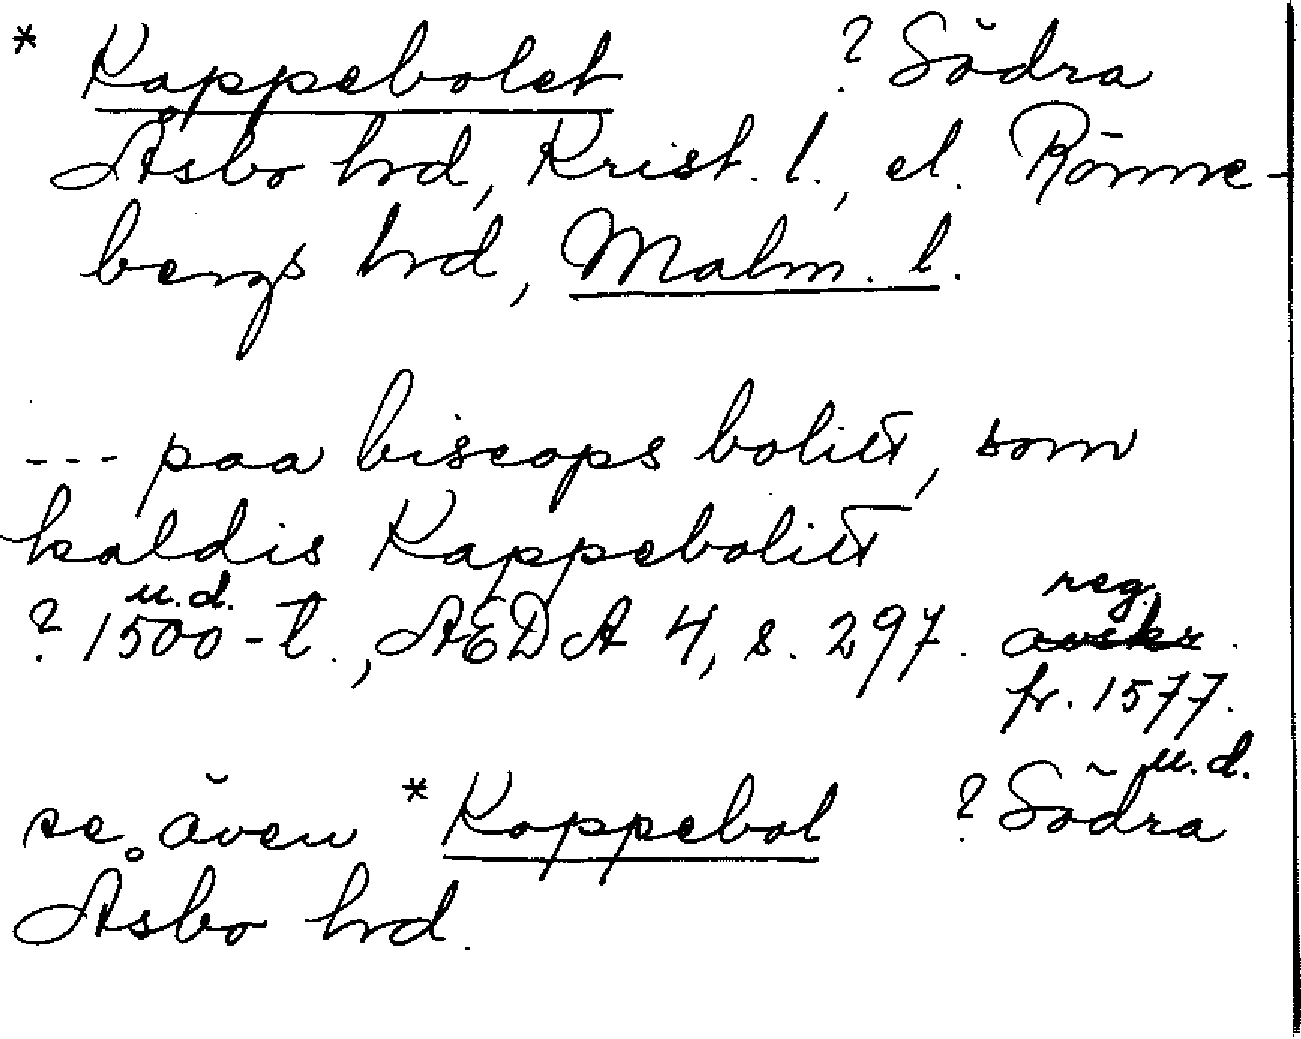 * Kappebolet ? Södra
Åsbo hrd, Krist. l., el. Rönne-
bergs hrd, Malm. l.
--- paa biscops boliit, som
kaldis Kappeboliit
u.d. reg.
? 1500-t., AEDA 4, s. 297. avskr.
fr. 1577.
u.d.
se även * Kappebol ? Södra
Åsbo hrd.